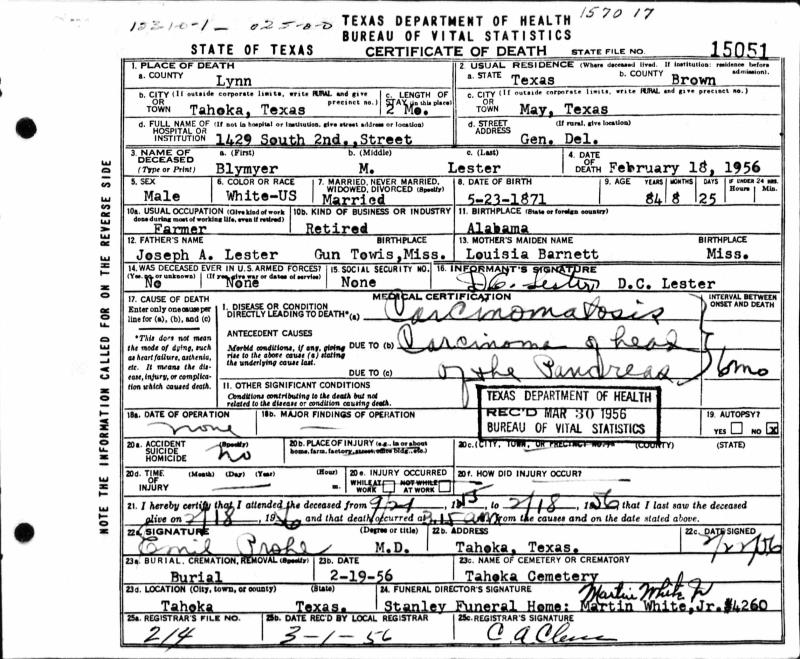 15310-1- 025-0-0 TEXAS DEPARTMENT OF HEALTH 1570 17
BUREAU OF VITAL STATISTICS
STATE OF TEXAS CERTIFICATE OF DEATH STATE FILE NO. 15051
1. PLACE OF DEATH
a. COUNTY Lynn
2. USUAL RESIDENCE (Where deceased lived. If institution: residence before admission).
a. STATE Texas b. COUNTY Brown
b. CITY (If outside corporate limits, write RURAL and give precinct no.)
OR TOWN Tahoka, Texas
c. LENGTH OF STAY (in this place) 2 Mo.
c. CITY (If outside corporate limits, write RURAL and give precinct no.)
OR TOWN May, Texas
d. FULL NAME OF (If not in hospital or institution, give street address or location)
HOSPITAL OR INSTITUTION 1429 South 2nd., Street
d. STREET ADDRESS (If rural, give location)
Gen. Del.
3. NAME OF DECEASED (Type or Print)
a. (First) Blymyer b. (Middle) M. c. (Last) Lester
4. DATE OF DEATH February 18, 1956
5. SEX Male
6. COLOR OR RACE White-US
7. MARRIED, NEVER MARRIED, WIDOWED, DIVORCED (Specify) Married
8. DATE OF BIRTH 5-23-1871
9. AGE YEARS 84 MONTHS 8 DAYS 25 IF UNDER 24 HRS. Hours Min.
10a. USUAL OCCUPATION (Give kind of work done during most of working life, even if retired) Farmer
10b. KIND OF BUSINESS OR INDUSTRY Retired
11. BIRTHPLACE (State or foreign country) Alabama
12. FATHER'S NAME BIRTHPLACE
Joseph A. Lester Gun Towis, Miss.
13. MOTHER'S MAIDEN NAME BIRTHPLACE
Louisia Barnett Miss.
14. WAS DECEASED EVER IN U.S. ARMED FORCES?
(Yes, no, or unknown) No (If yes, give war or dates of service) None
15. SOCIAL SECURITY NO. None
16. INFORMANT'S SIGNATURE D.C. Lester D.C. Lester
17. CAUSE OF DEATH
Enter only one cause per line for (a), (b), and (c)
*This does not mean the mode of dying, such as heart failure, asthenia, etc. It means the disease, injury, or complication which caused death.
MEDICAL CERTIFICATION
INTERVAL BETWEEN ONSET AND DEATH
I. DISEASE OR CONDITION DIRECTLY LEADING TO DEATH*(a) Carcinomatosis
ANTECEDENT CAUSES
Morbid conditions, if any, giving rise to the above cause (a) stating the underlying cause last.
DUE TO (b) Carcinoma of head
DUE TO (c) of the Pancreas 6mo
II. OTHER SIGNIFICANT CONDITIONS
Conditions contributing to the death but not related to the disease or condition causing death.
TEXAS DEPARTMENT OF HEALTH
REC'D MAR 30 1956
BUREAU OF VITAL STATISTICS
18a. DATE OF OPERATION none
18b. MAJOR FINDINGS OF OPERATION
19. AUTOPSY? YES NO X
20a. ACCIDENT SUICIDE HOMICIDE (Specify) no
20b. PLACE OF INJURY (e.g., in or about home, farm, factory, street, office bldg., etc.)
20c. (CITY, TOWN, OR PRECINCT NO.) (COUNTY) (STATE)
20d. TIME OF INJURY (Month) (Day) (Year) (Hour) m.
20e. INJURY OCCURRED WHILE AT WORK NOT WHILE AT WORK
20f. HOW DID INJURY OCCUR?
21. I hereby certify that I attended the deceased from 9/21, to 2/18, 1956 that I last saw the deceased
alive on 2/18, 1956 and that death occurred at 3:15 am from the causes and on the date stated above.
22a. SIGNATURE (Degree or title) Emil Prohl M.D.
22b. ADDRESS Tahoka, Texas.
22c. DATE SIGNED 2/22/56
23a. BURIAL, CREMATION, REMOVAL (Specify) Burial
23b. DATE 2-19-56
23c. NAME OF CEMETERY OR CREMATORY Tahoka Cemetery
23d. LOCATION (City, town, or county) (State)
Tahoka Texas.
24. FUNERAL DIRECTOR'S SIGNATURE Martin White Jr
Stanley Funeral Home: Martin White, Jr. #4260
25a. REGISTRAR'S FILE NO. 214
25b. DATE REC'D BY LOCAL REGISTRAR 3-1-56
25c. REGISTRAR'S SIGNATURE C A Clem
NOTE THE INFORMATION CALLED FOR ON THE REVERSE SIDE